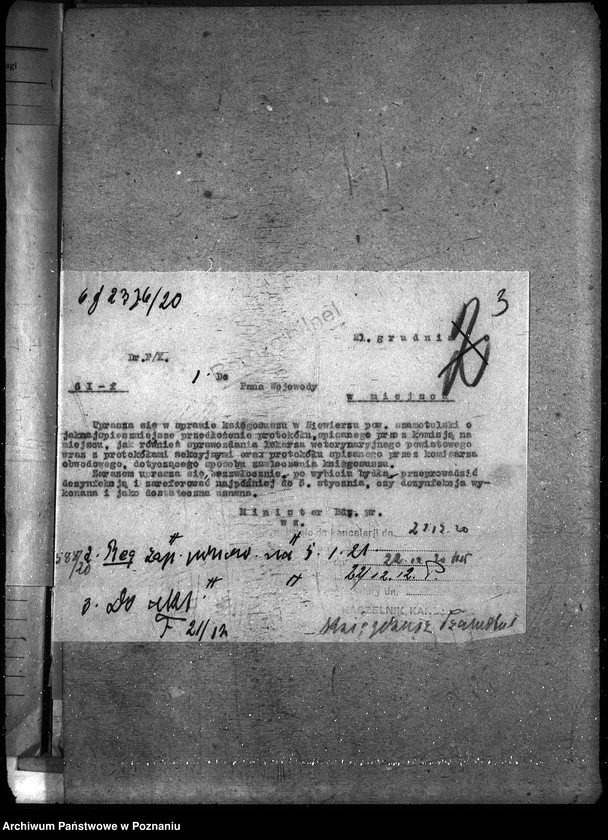 6 g 2376/20
3
Bardzo pilne!
21. g r u d n i a
Dr.F/K.
1. Do
Pana Wojewody
6 I - g
w m i e j s c u
Uprasza się w sprawie księgosuszu w Niewierzu pow. szamotulski o
jaknajspieszniejsze przedłożenie protokółu, spisanego przez komisję na
miejscu, jak również sprawozdania lekarza weterynaryjnego powiatowego
wraz z protokółami sekcyjnemi oraz protokółu spisanego przez komisarza
obwodowego, dotyczącego sposobu znalezienia księgosuszu.
Zarazem uprasza się, bezzwłocznie, po wybiciu bydła, przeprowadzić
dezynfekcję i zareferować najpóźniej do 5. stycznia, czy dezynfekcja wy-
konana i jako dostateczna uznana.
M i n i s t e r Bdz. pr.
w z.
do kancelarji dn. 22 12 20
2. Reg zap. na 5. 1. 21
22.12.20
24/12.12.
dn.
3. Do akt.
F 21/12
NACZELNIK KAN
Księgosusz
Archiwum Państwowe w Poznaniu